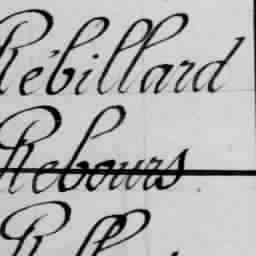 Rébillard
Rebours